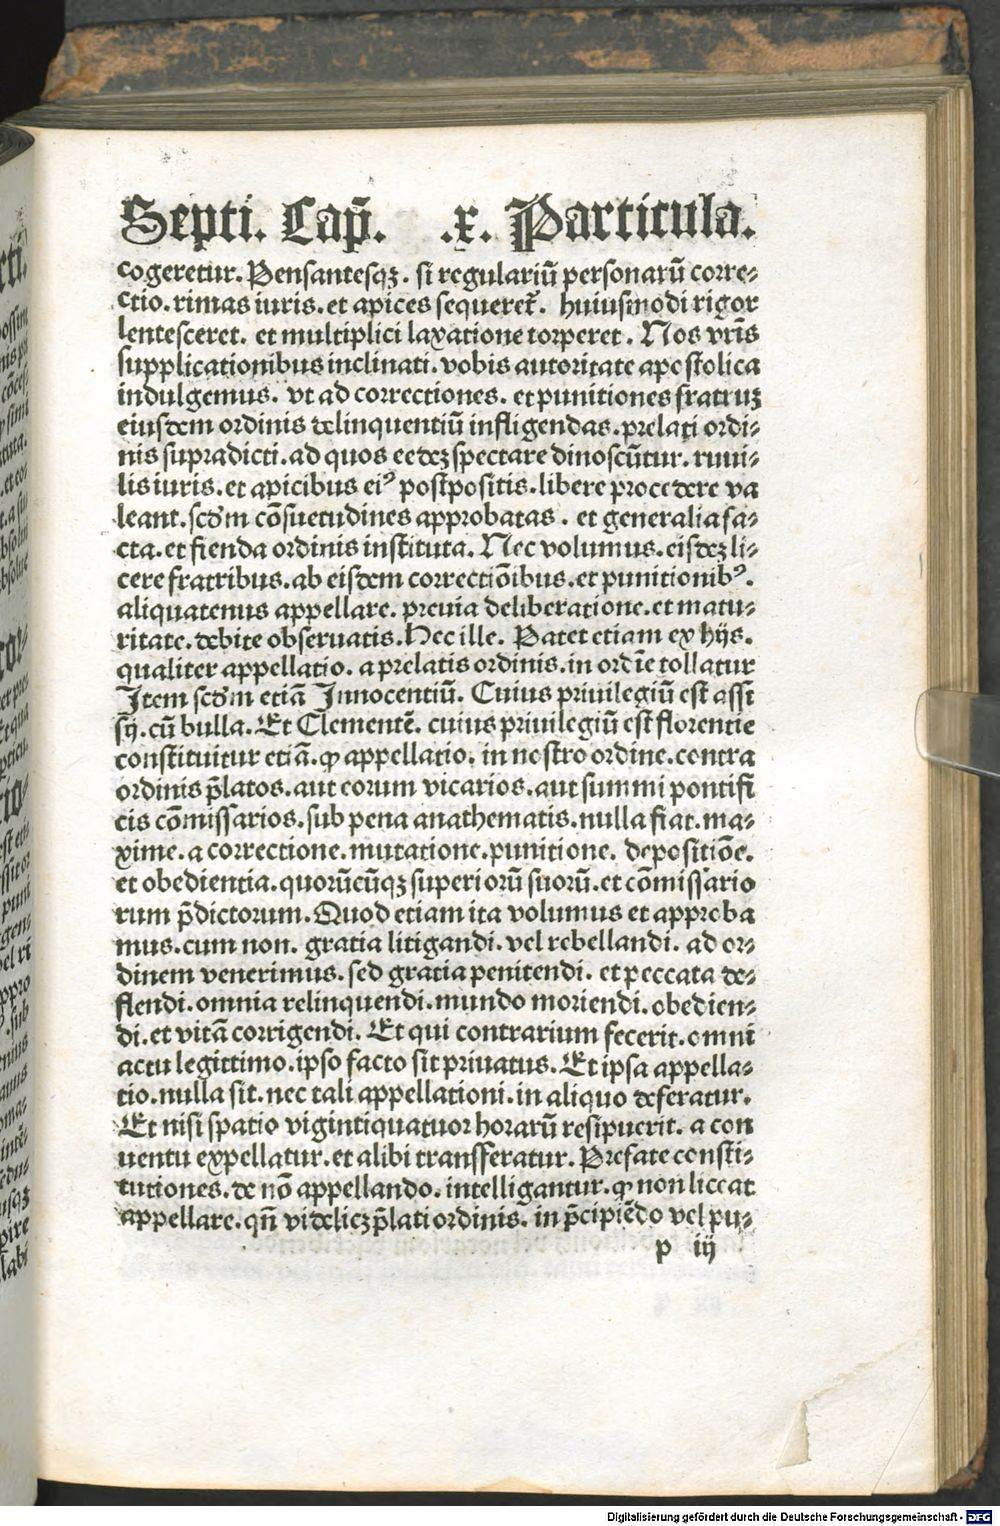 Septi. Cap̄. .x. Particula.
cogeretur. Pensantesqꝫ. si regulariū personarū corre⸗
ctio. rimas iuris. et apices sequeret᷑. huiusmodi rigor
lentesceret. et multiplici laxatione torperet. Nos vr̄is
supplicationibus inclinati. vobis autoritate apostolica
indulgemus. vt ad correctiones. et punitiones fratruꝫ
eiusdem ordinis delinquentiū infligendas. prelati ordi⸗
nis supradicti. ad quos eedeꝫ spectare dinoscūtur. riui⸗
lis iuris. et apicibus eiꝰ postpositis. libere procedere va
leant. scd̄m cōsuetudines approbatas. et generalia fa⸗
cta. et fienda ordinis instituta. Nec volumus. eisdeꝫ li⸗
cere fratribus. ab eisdem correctiōibus. et punitionibꝰ.
aliquatenus appellare. preuia deliberatione. et matu⸗
ritate. debite obseruatis. Hec ille. Patet etiam ex hijs.
qualiter appellatio. a prelatis ordinis. in ordīe tollatur
Item scd̄m etiā Innocentiū. Cuius priuilegiū est assi
sij. cū bulla. Et Clementē. cuius priuilegiū est florentie
constituitur etiā. ꝙ appellatio. in nostro ordine. contra
ordinis p̄latos. aut eorum vicarios. aut summi pontifi
cis cōmissarios. sub pena anathematis. nulla fiat. ma⸗
xime. a correctione. mutatione. punitione. depositiōe.
et obedientia. quorūcūqꝫ superiorū suorū. et cōmissario
rum p̄dictorum. Quod etiam ita volumus et approba
mus. cum non. gratia litigandi. vel rebellandi. ad or⸗
dinem venerimus. sed gratia penitendi. et peccata de⸗
flendi. omnia relinquendi. mundo moriendi. obedien⸗
di. et vitā corrigendi. Et qui contrarium fecerit. omni
actu legittimo. ipso facto sit priuatus. Et ipsa appella⸗
tio. nulla sit. nec tali appellationi. in aliquo deferatur.
Et nisi spatio vigintiquatuor horarū resipuerit. a con
uentu expellatur. et alibi transferatur. Prefate consti⸗
tutiones. de nō appellando. intelligantur. ꝙ non liceat
appellare. qn̄ videliꝫ p̄lati ordinis. in p̄cipiēdo vel pu⸗
p iij
Digitalisierung gefördert durch die Deutsche Forschungsgemeinschaft - DFG